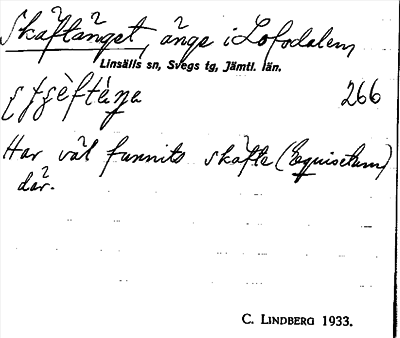 Skäftänget, änge i Lofsdalen,
Linsälls sn, Svegs tg, Jämtl. län.
266
Har väl funnits skäfte (Equisetum)
där.
C. LINDBERG 1933.